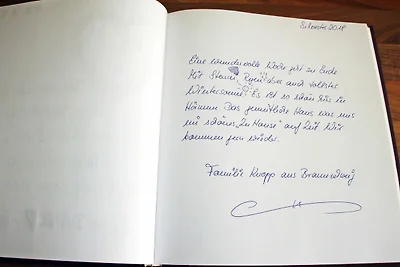 Silvester 2018
Eine wundervolle Woche geht zu Ende
Mit Sturm, Regen aber auch vollster
Wintersonne! Es ist so schön hier in
Das gemütliche Haus war uns
ein schönes "zu Hause" auf Zeit. Wir
kommen gern wieder.
Familie Knopp aus Braunschweig